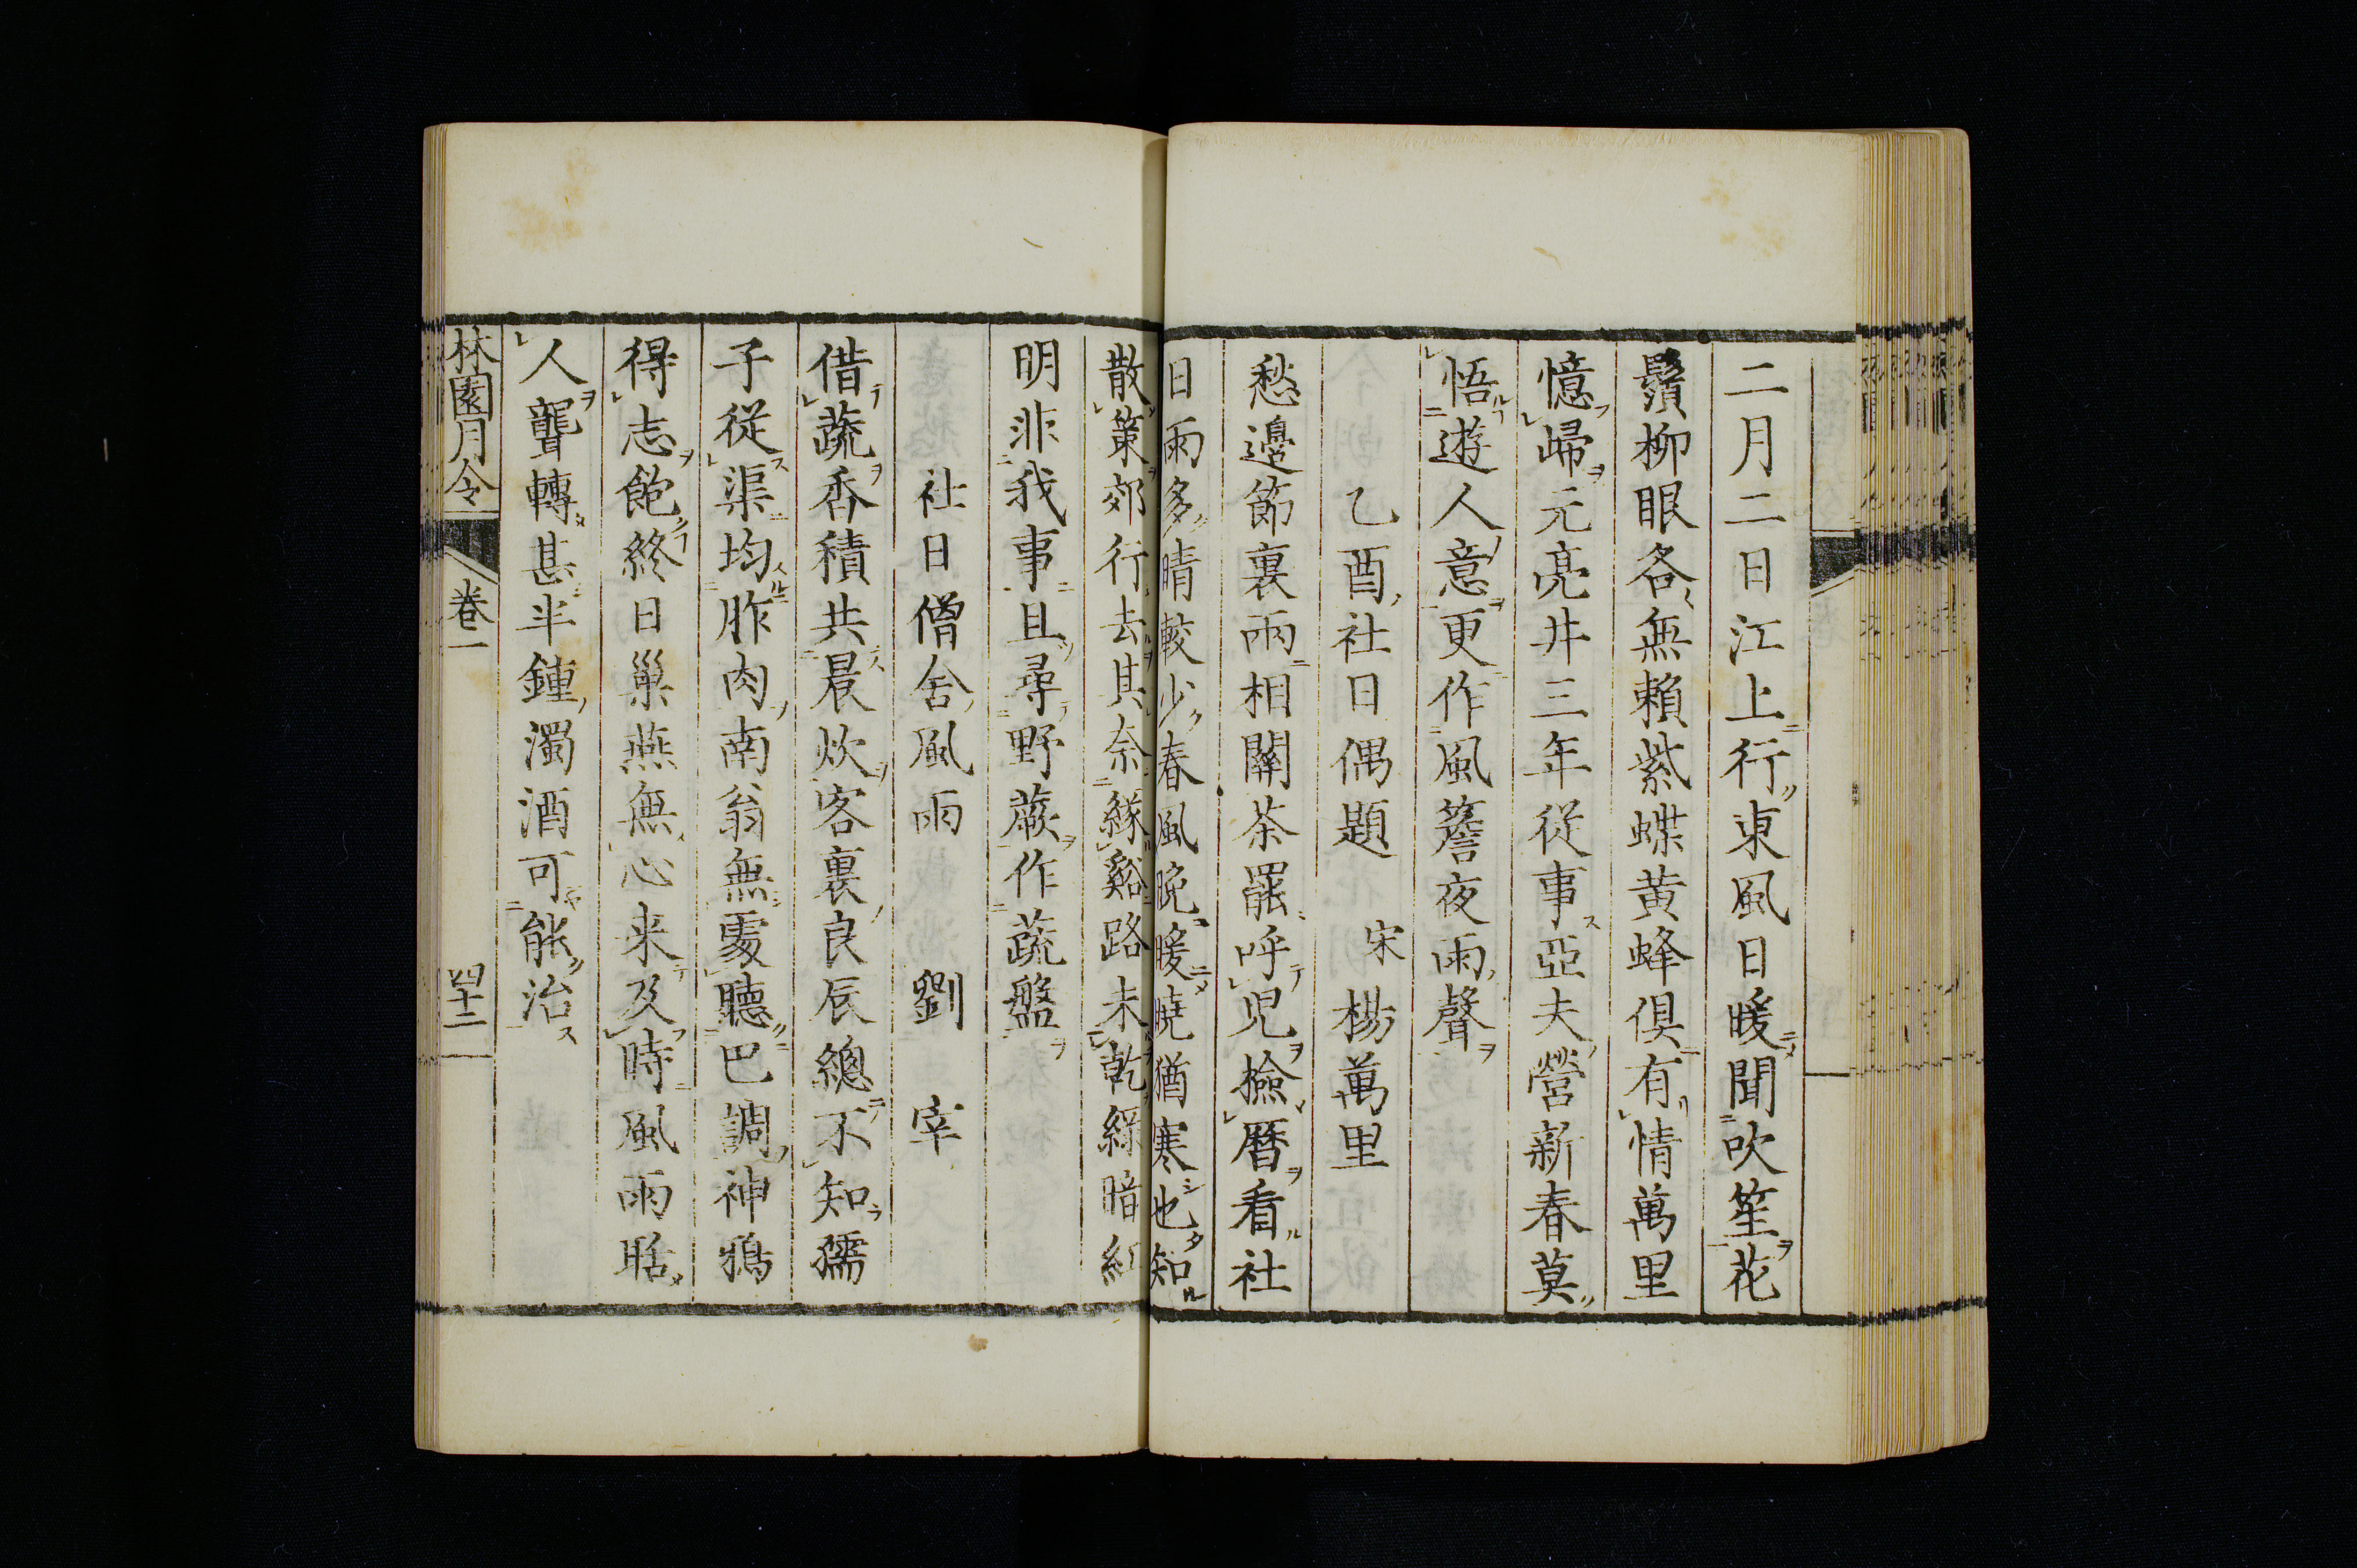 二月二日江上行東風日暖聞吹笙花
鬚柳眼各無賴紫蝶黄蜂倶有情萬里
憶歸元亮井三年従事亞夫營新春莫
悟遊人意更作風簷夜雨聲
乙酉社日偶題 宋 楊萬里
愁邊節裏兩相關茶罷呼児撿曆看社
日雨多晴較少春風晚暖曉猶寒也知
散策郊行去其奈緣谿路未乾綠暗紅
明非我事且尋野蕨作蔬盤
社日僧舍風雨 劉 宰
借蔬香積共晨炊客裏良辰總不知獳
子従渠均胙肉南翁無處聽巴調神鴉
得志飽終日巢燕無心来及時風雨聒
人聾轉甚半鍾濁酒可能治
林園月令 卷一 四十二